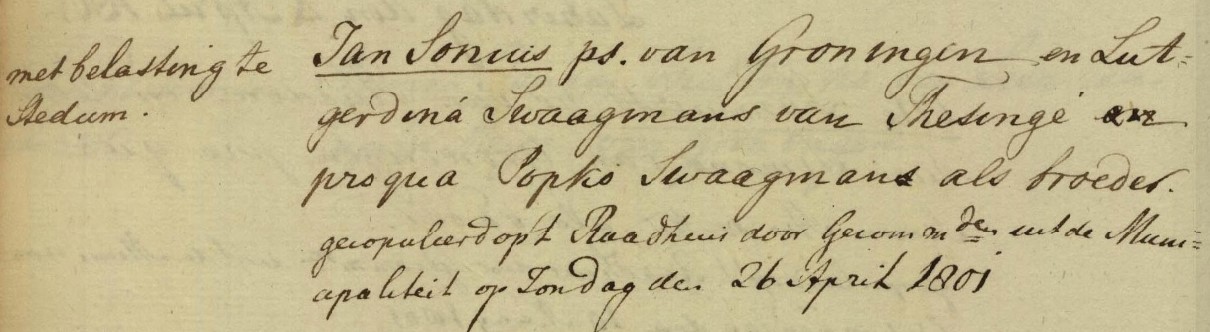 met belasting te
Stedum.
Jan Sonius ps. van Groningen en Lut=
gerdina Swaagmans van Thesinge en
pro qua Popko Swaagmans als broeder.
gecopuleerd op't Raadhuis door Gecommden uit de Muni=
cipaliteit op Zondag den 26 April 1801